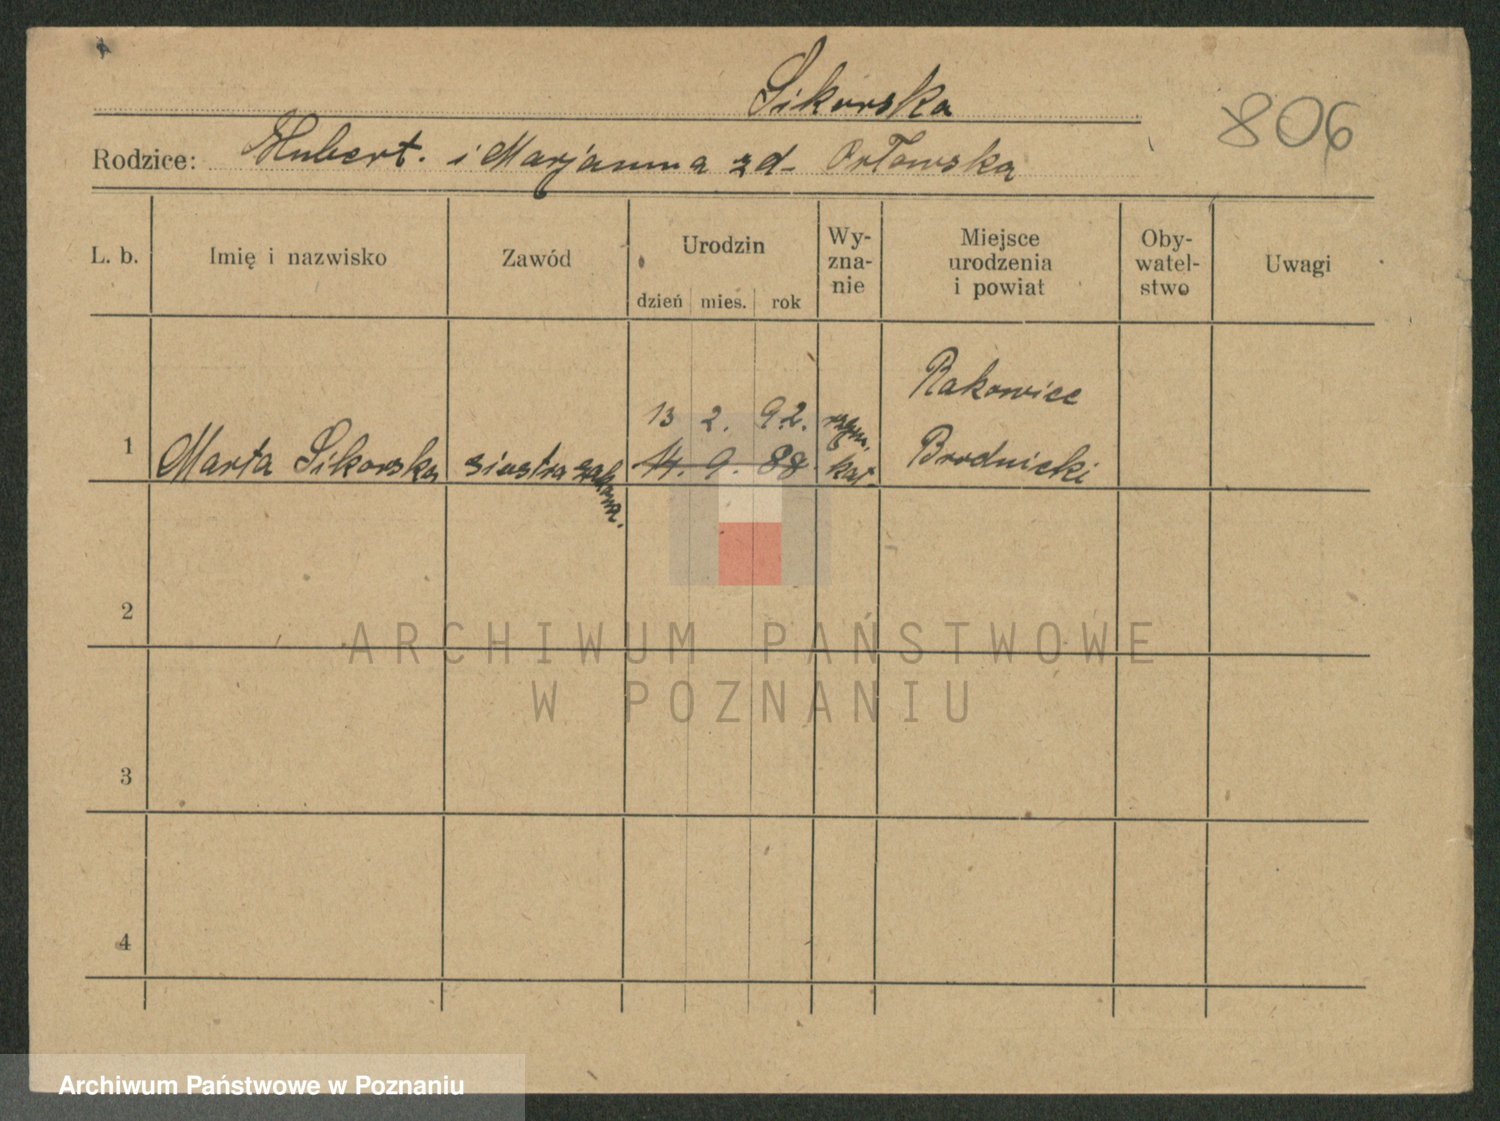 Sikorska
806
Rodzice: Hubert. i Marjanna zd- Orłowska
L. b.
Imię i nazwisko
Zawód
Urodzin
dzień mies. rok
Wy-
zna-
nie
Miejsce
urodzenia
i powiat
Oby-
watel-
stwo
Uwagi
1
Marta Sikorska
siostra zakonna.
13 2. 92.
14. 9. 88.
rzym.
kat.
Rakowice
Brodnicki
2
3
4
ARCHIWUM PAŃSTWOWE
W POZNANIU
Archiwum Państwowe w Poznaniu